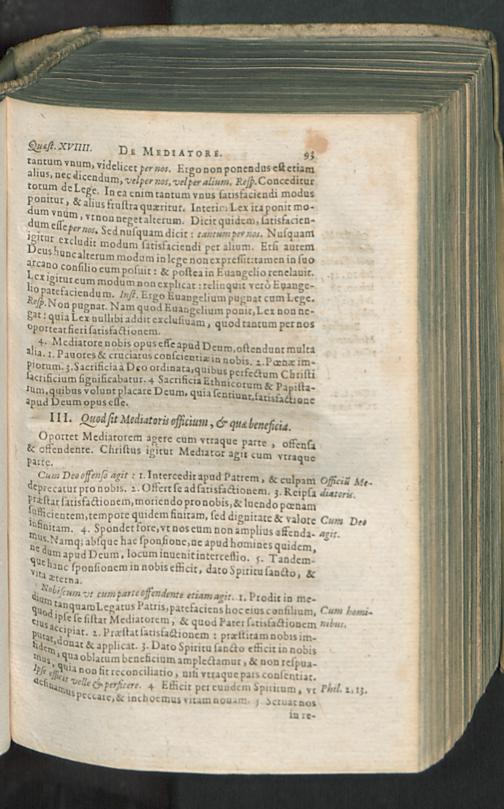 Quæst. XVIIII. DE MEDIATORE. 93
tantum vnum, videlicet per nos. Ergo non ponendus est etiam
alius, nec dicendum, vel per nos, vel per alium. Resp. Conceditur
totum de Lege. In ea enim tantum vnus satisfaciendi modus
ponitur, & alius frustra quæritur. Interim Lex ita ponit mo-
dum vnum, vt non neget alterum. Dicit quidem, satisfacien-
dum esse per nos. Sed nusquam dicit: tantum per nos. Nusquam
igitur excludit modum satisfaciendi per alium. Etsi autem
Deus hunc alterum modum in lege non expressit: tamen in suo
arcano consilio eum posuit: & postea in Euangelio reuelauit.
Lex igitur eum modum non explicat: relinquit verò Euange-
lio patefaciendum. Inst. Ergo Euangelium pugnat cum Lege.
Resp. Non pugnat. Nam quod Euangelium ponit, Lex non ne-
gat: quia Lex nullibi addit exclusiuam, quod tantum per nos
oporteat fieri satisfactionem.
4. Mediatore nobis opus esse apud Deum, ostendunt multa
alia. 1. Pauores & cruciatus conscientiæ in nobis. 2. Pœnæ im-
piorum. 3. Sacrificia à Deo ordinata, quibus perfectum Christi
sacrificium significabatur. 4 Sacrificia Ethnicorum & Papista-
rum, quibus volunt placare Deum, quia sentiunt, satisfactione
apud Deum opus esse.
III. Quod sit Mediatoris officium, & quæ beneficia.
Oportet Mediatorem agere cum vtraque parte, offensa
& offendente. Christus igitur Mediator agit cum vtraque
parte.
Cum Deo offenso agit: 1. Intercedit apud Patrem, & culpam Officiũ Me-
deprecatur pro nobis. 2. Offert se ad satisfactionem. 3. Reipsa diatoris.
præstat satisfactionem, moriendo pro nobis, & luendo pœnam
sufficientem, tempore quidem finitam, sed dignitate & valore Cum Deo
infinitam. 4. Spondet fore, vt nos eum non amplius offenda- agit.
mus. Namq; absque hac sponsione, ne apud homines quidem,
ne dum apud Deum, locum inuenit intercessio. 5. Tandem-
que hanc sponsionem in nobis efficit, dato Spiritu sancto, &
vita æterna.
Nobiscum vt cum parte offendente etiam agit. 1. Prodit in me-
dium tanquam Legatus Patris, patefaciens hoc eius consilium, Cum homi-
quod ipse se sistat Mediatorem, & quod Pater satisfactionem nibus.
eius accipiat. 2. Præstat satisfactionem: præstitam nobis im-
putat, donat & applicat. 3. Dato Spiritu sancto efficit in nobis
fidem, qua oblatum beneficium amplectamur, & non respua-
mus, quia non fit reconciliatio, nisi vtraque pars consentiat.
Ipse efficit velle & perficere. 4 Efficit per eundem Spiritum, vt Phil. 2, 13.
desinamus peccare, & inchoemus vitam nouam. 5 Seruat nos
in re-